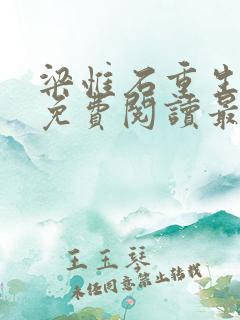 梁惟石重生
免費閱讀最
王玉琴
未经同意禁止转载